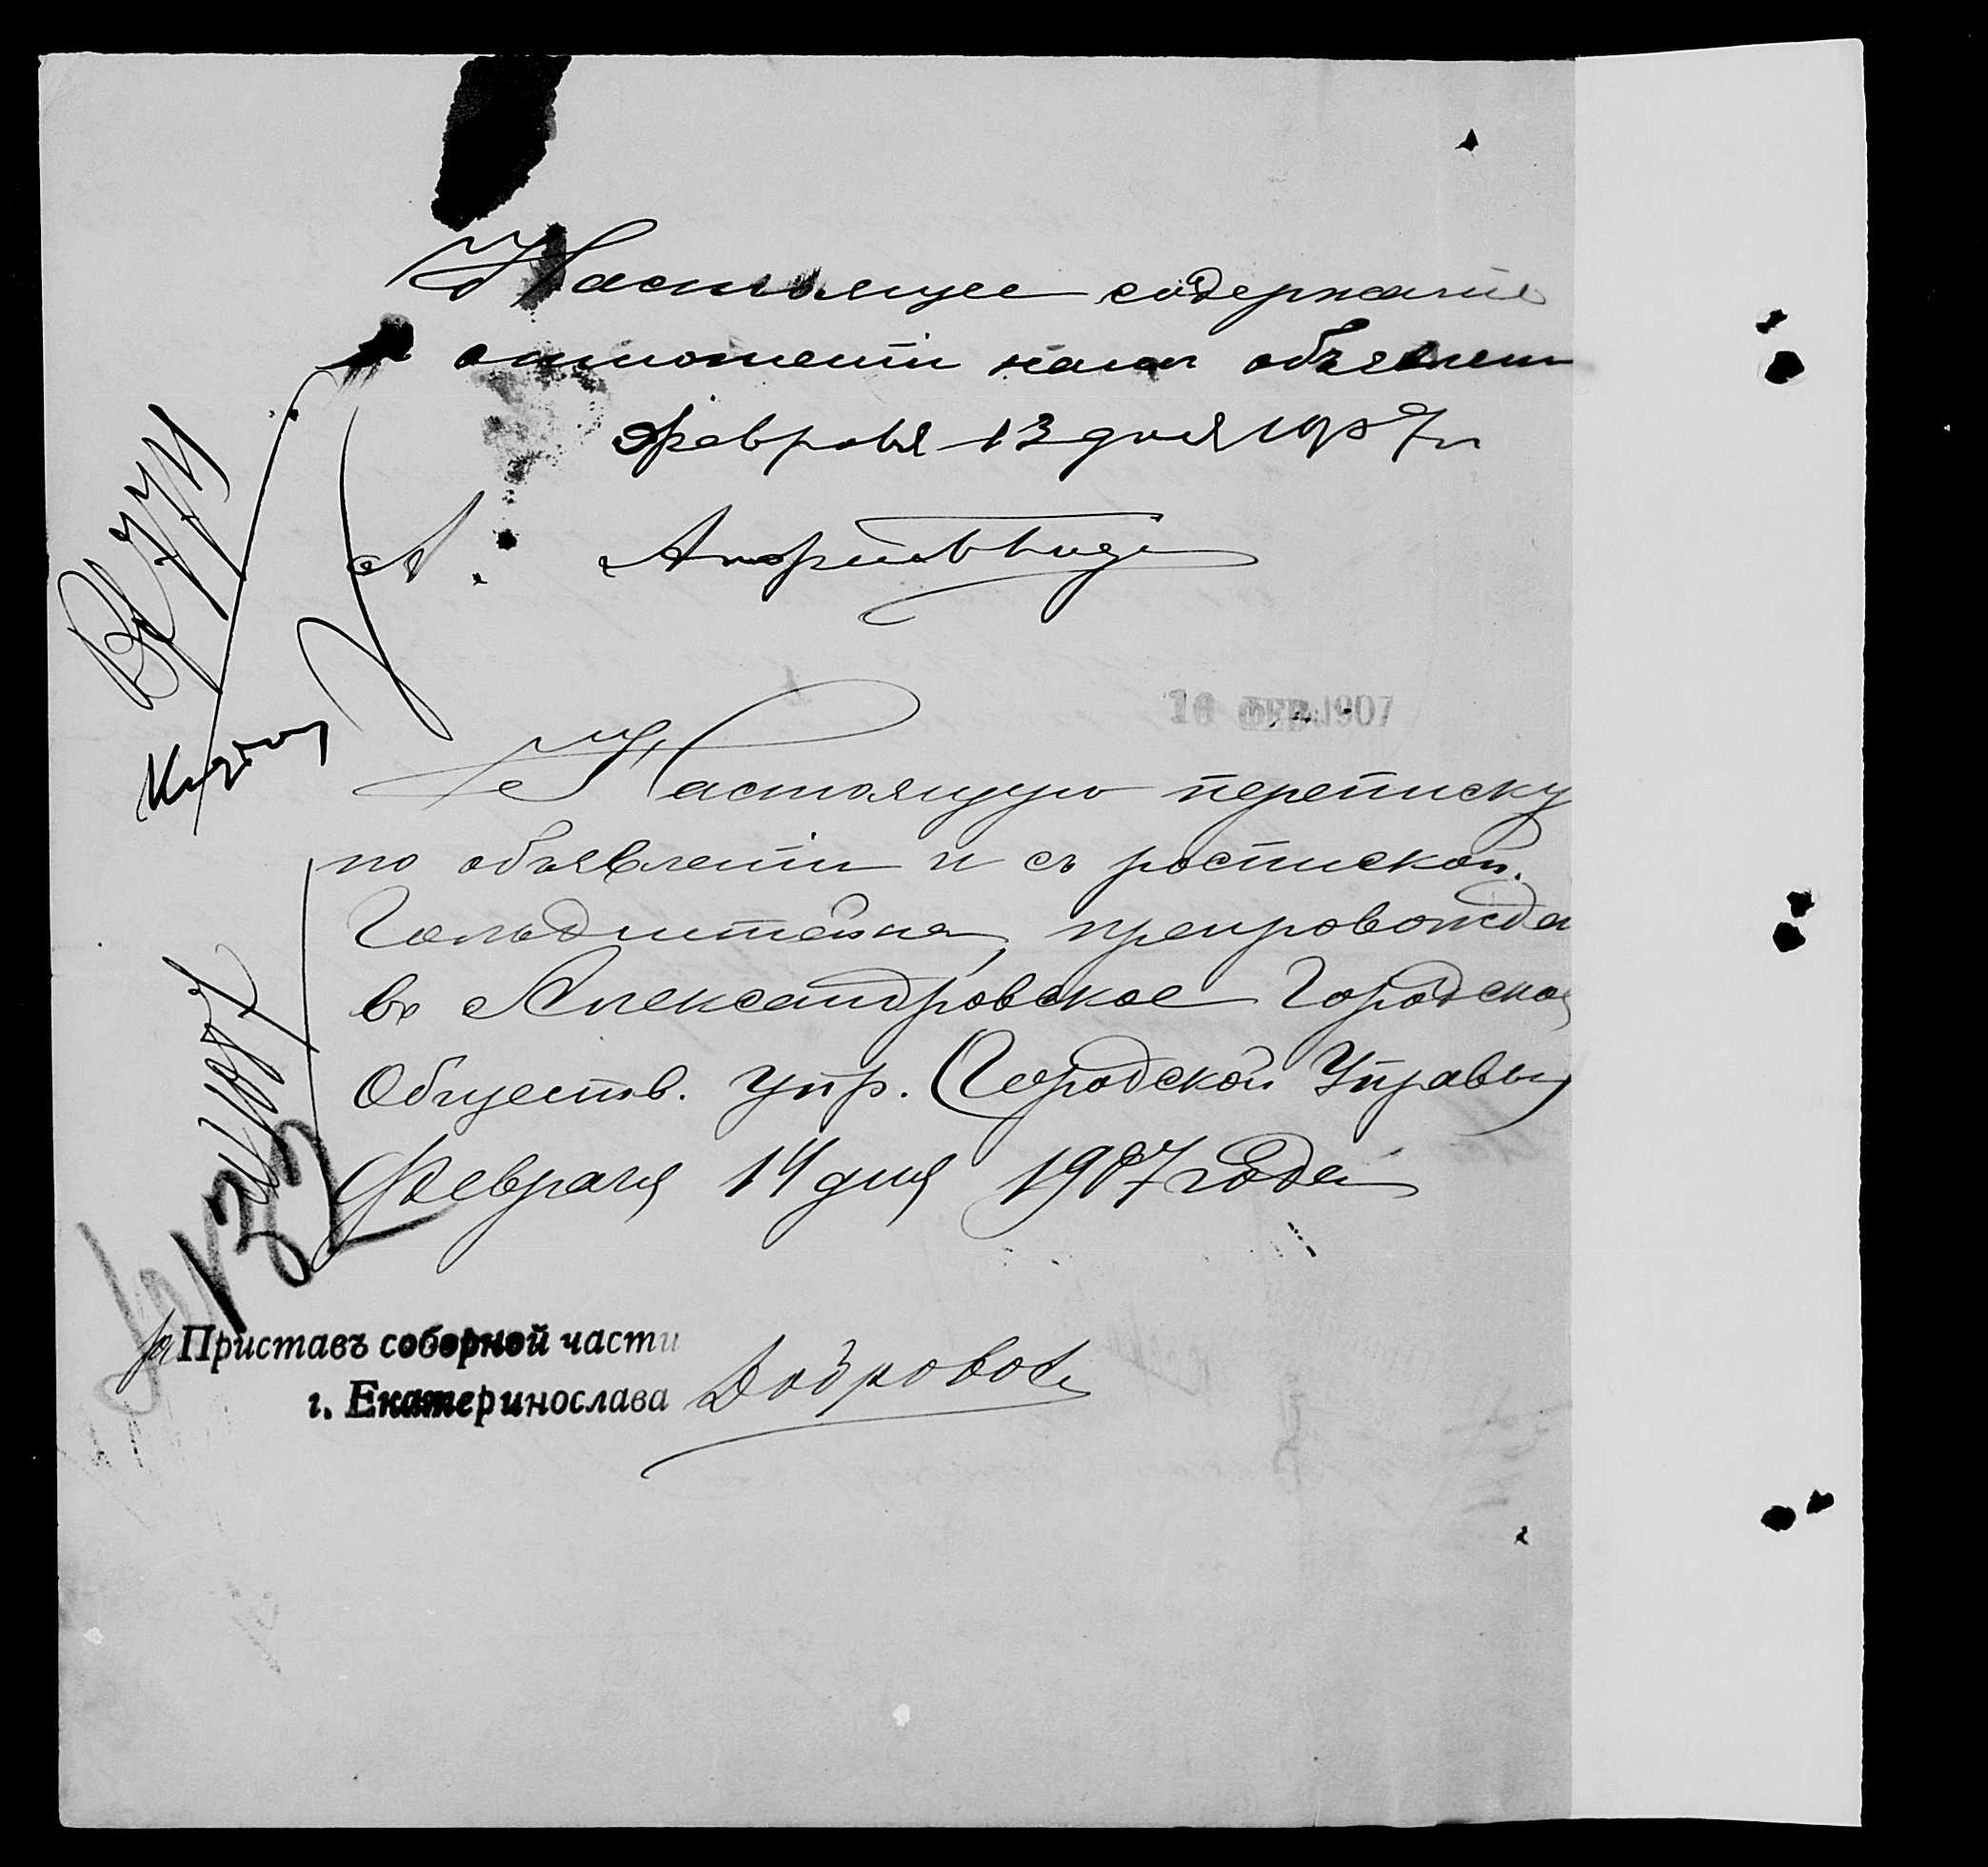 Настоящее содержаніе
отношенія намъ объявлен
Февраля 13 дня 1907 г
А.
16 ФЕВ. 1907
Настоящую переписку
по объявленіи и съ роспиской
Гольдштейна, препровожда
въ Александровское Городское
Обществ. Упр. (Городской Управы)
Февраля 14 дня 1907 года
Приставъ соборной части
г. Екатеринослава